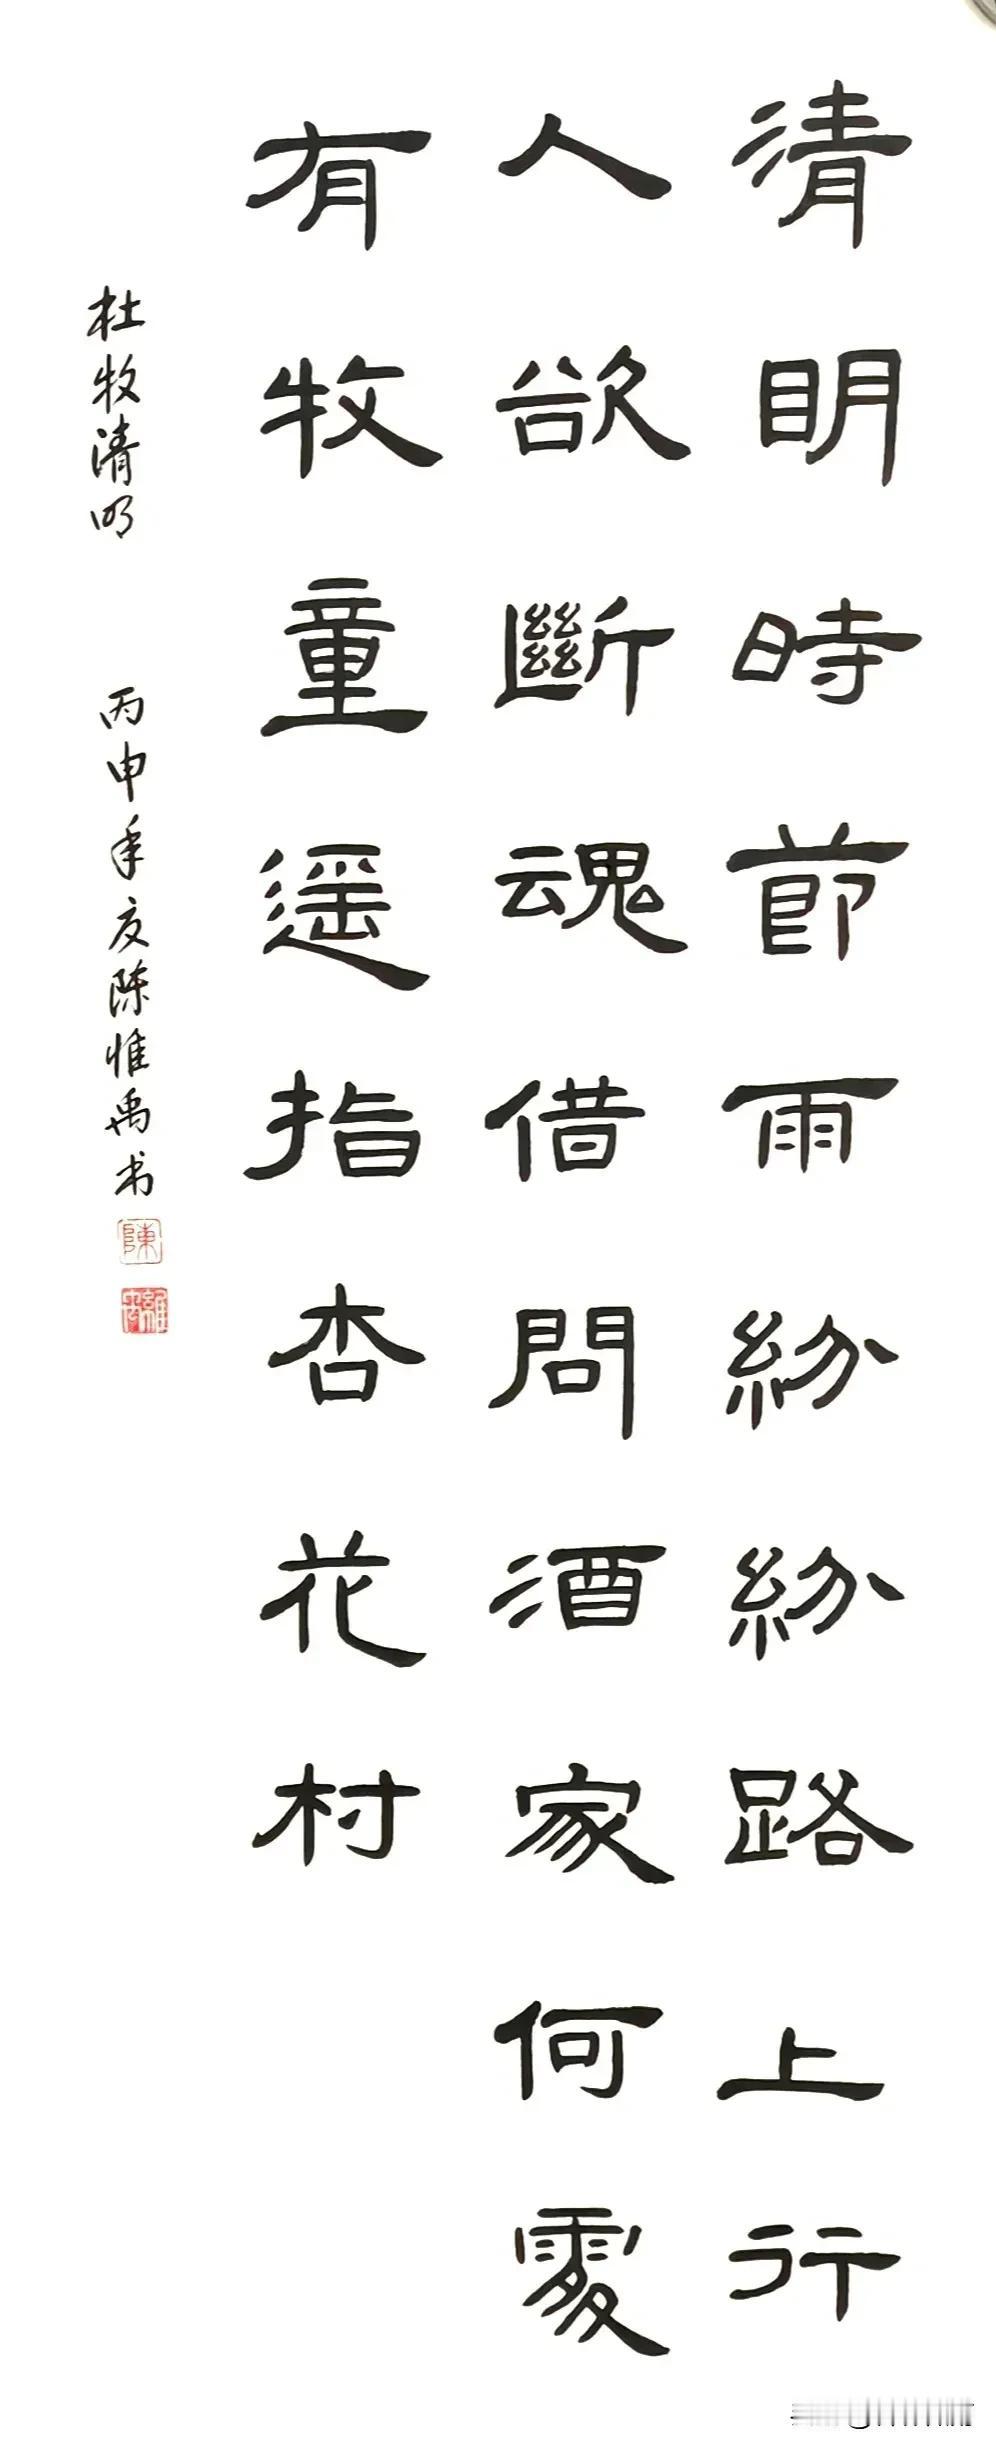 清明時節雨紛紛路上行
人欲斷魂借問酒家何處
有牧童遥指杏花村
杜牧清明 丙申年夜陈惟禹书
陳